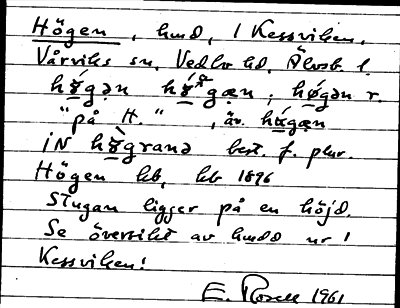 Högen, hmd, 1 Kessviken,
Vårviks sn, Vedbo hd, Älvsb. l.
hɤ́gən hɤ́gæn, hǿgən r.
"på H.", äv. hɑ́gæn
iN hɤ̀granə best. f. plur.
Högen hb, hb 1896
Stugan ligger på en höjd.
Se översikt av hmdd nr 1
Kessviken!
E. Rosell 1961